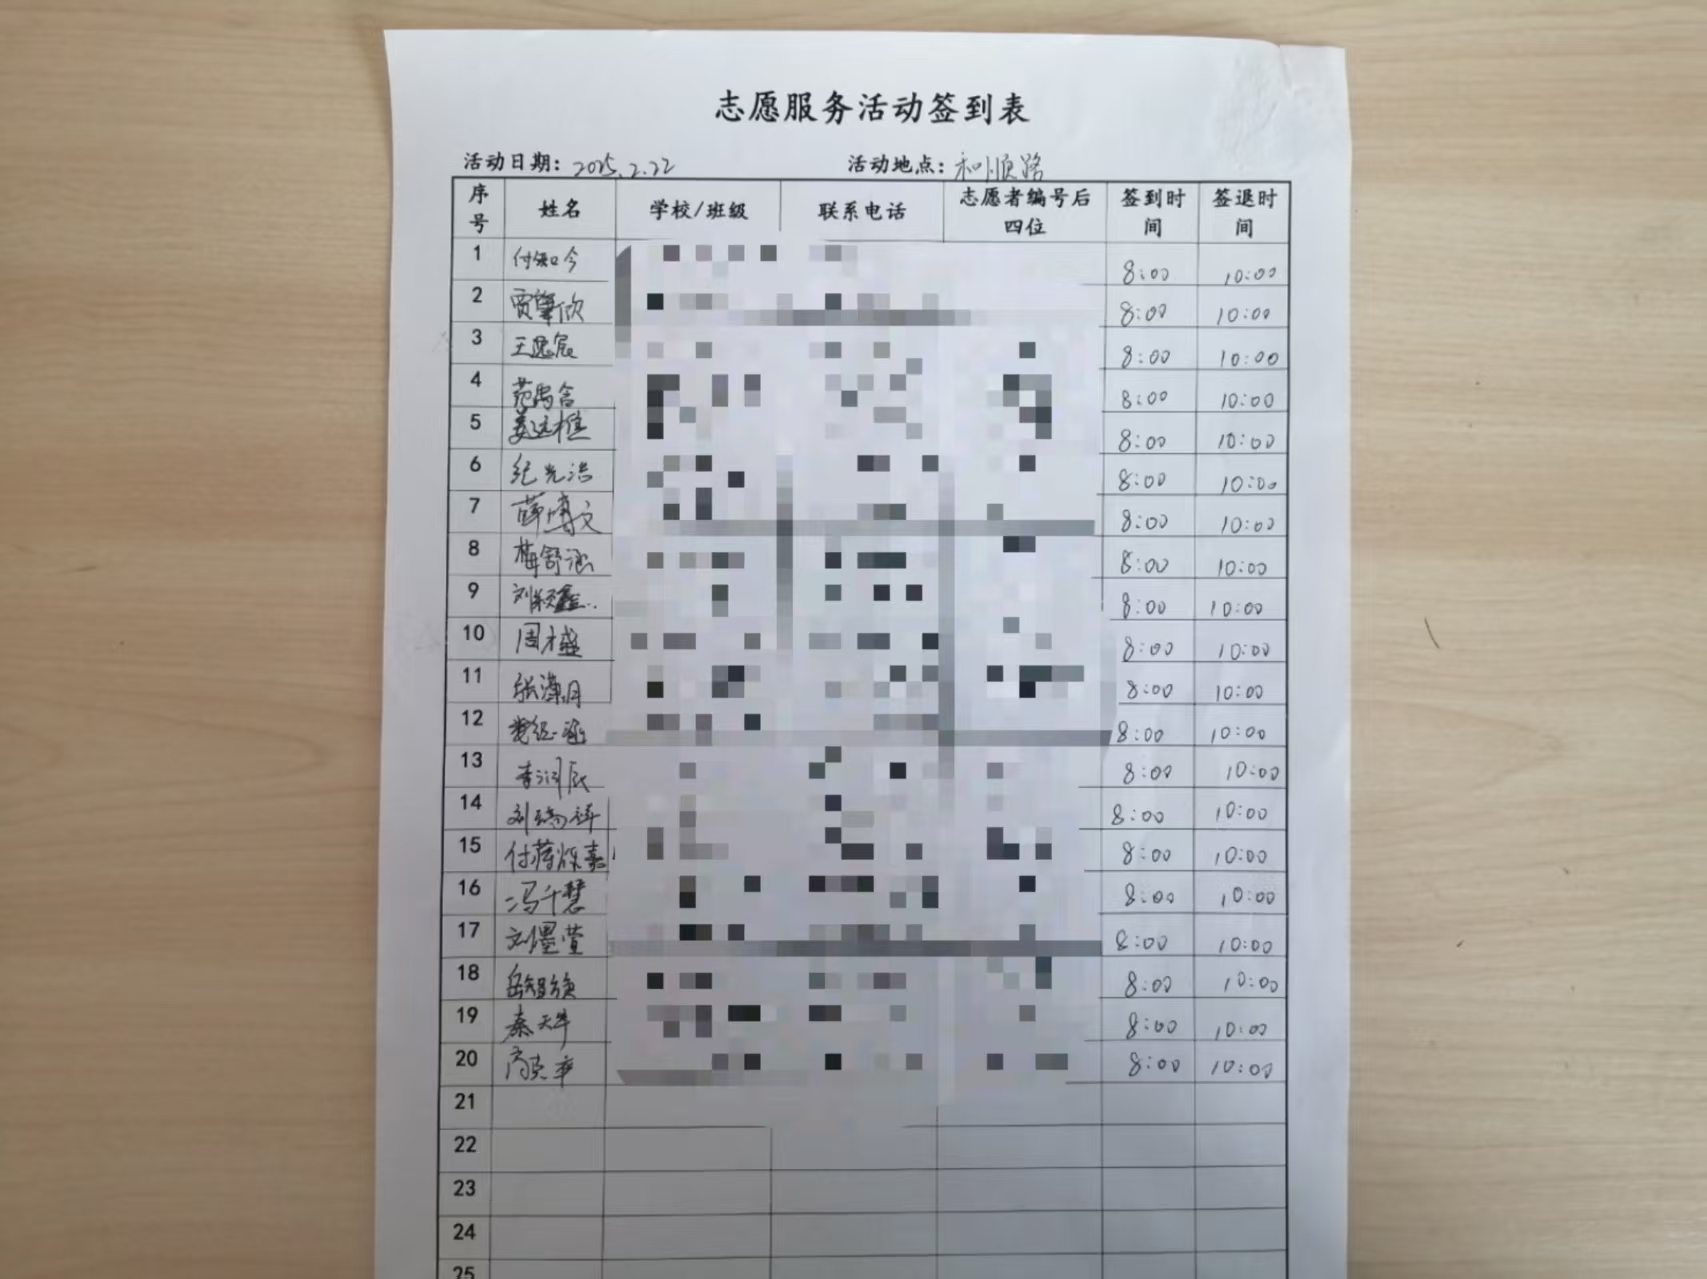 志愿服务活动签到表
活动日期：2025.2.22 活动地点：和顺路
序号 姓名 学校/班级 联系电话 志愿者编号后四位 签到时间 签退时间
1 付知今 8:00 10:00
2 贾肇欣 8:00 10:00
3 王逸宸 8:00 10:00
4 范禹含 8:00 10:00
5 姜远植 8:00 10:00
6 纪光浩 8:00 10:00
7 薛博文 8:00 10:00
8 梅舒涵 8:00 10:00
9 刘颖鑫 8:00 10:00
10 周才盛 8:00 10:00
11 张潇月 8:00 10:00
12 8:00 10:00
13 李润辰 8:00 10:00
14 刘瑞祥 8:00 10:00
15 付蒋烁嘉 8:00 10:00
16 冯千慧 8:00 10:00
17 刘墨萱 8:00 10:00
18 8:00 10:00
19 秦天华 8:00 10:00
20 高奕章 8:00 10:00
21
22
23
24
25